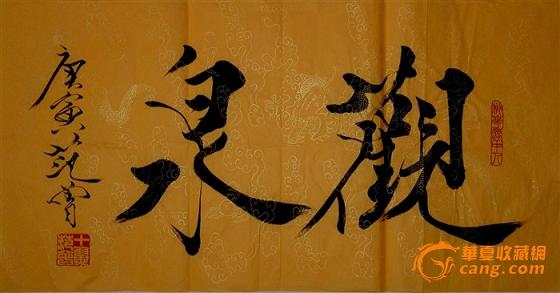 觀泉
庚寅范曾
華夏收藏網
cang.com